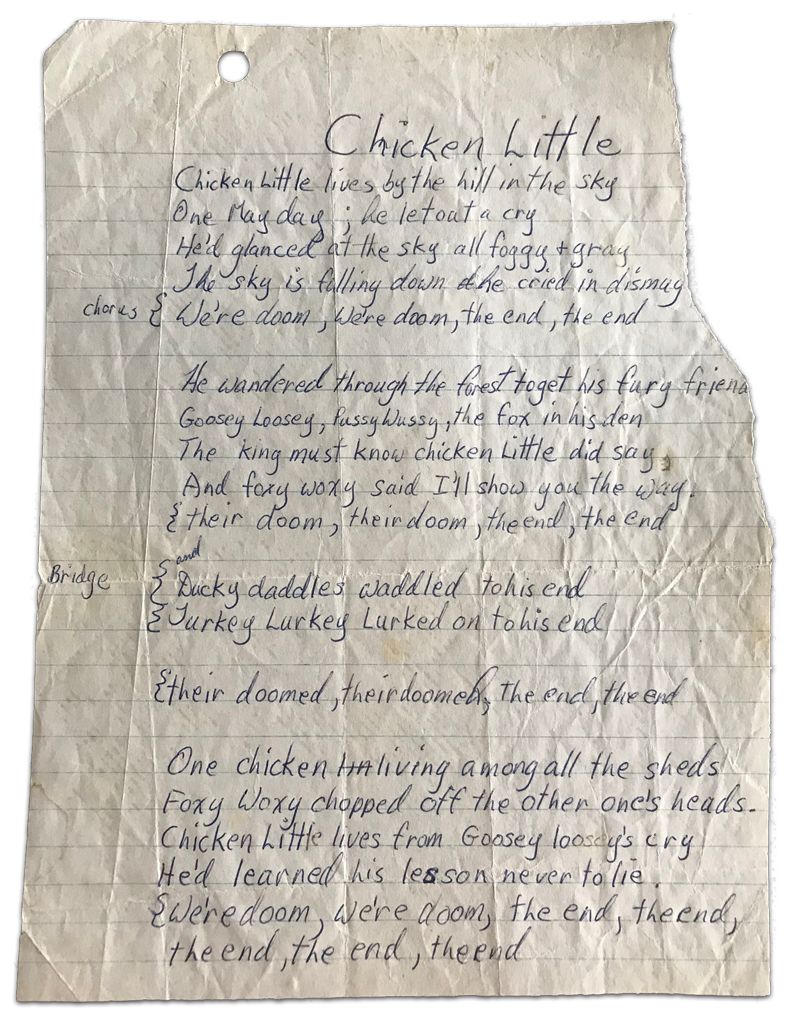 Chicken Little
Chicken Little lives by the hill in the sky
One May day ; he let out a cry
He'd glanced at the sky all foggy + gray
The sky is falling down he cried in dismay
chorus { We're doom, We're doom, the end, the end
He wandered through the forest to get his fury friend
Goosey Loosey, Pussy Wussy, the fox in his den
The king must know chicken Little did say,
And foxy woxy said I'll show you the way.
{ their doom, their doom, the end, the end
and
Bridge { Ducky daddles waddled to his end
{ Turkey Lurkey Lurked on to his end
{ their doomed, their doomed, The end, the end
One chicken living among all the sheds
Foxy Woxy chopped off the other one's heads.
Chicken Little lives from Goosey loosey's cry
He'd learned his lesson never to lie.
{ We're doom, we're doom, the end, the end,
the end, the end, the end